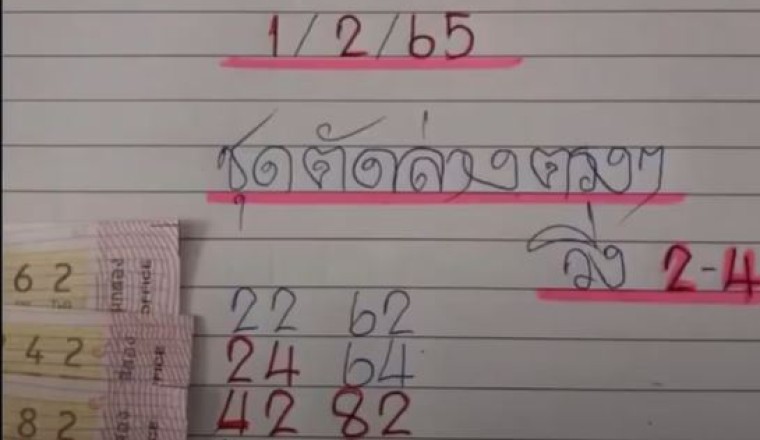 1/2/65
ชุดตัดล่างตรงๆ
วิ่ง 2-4
62
OFFICE
22 62
42
24 64
82
42 82